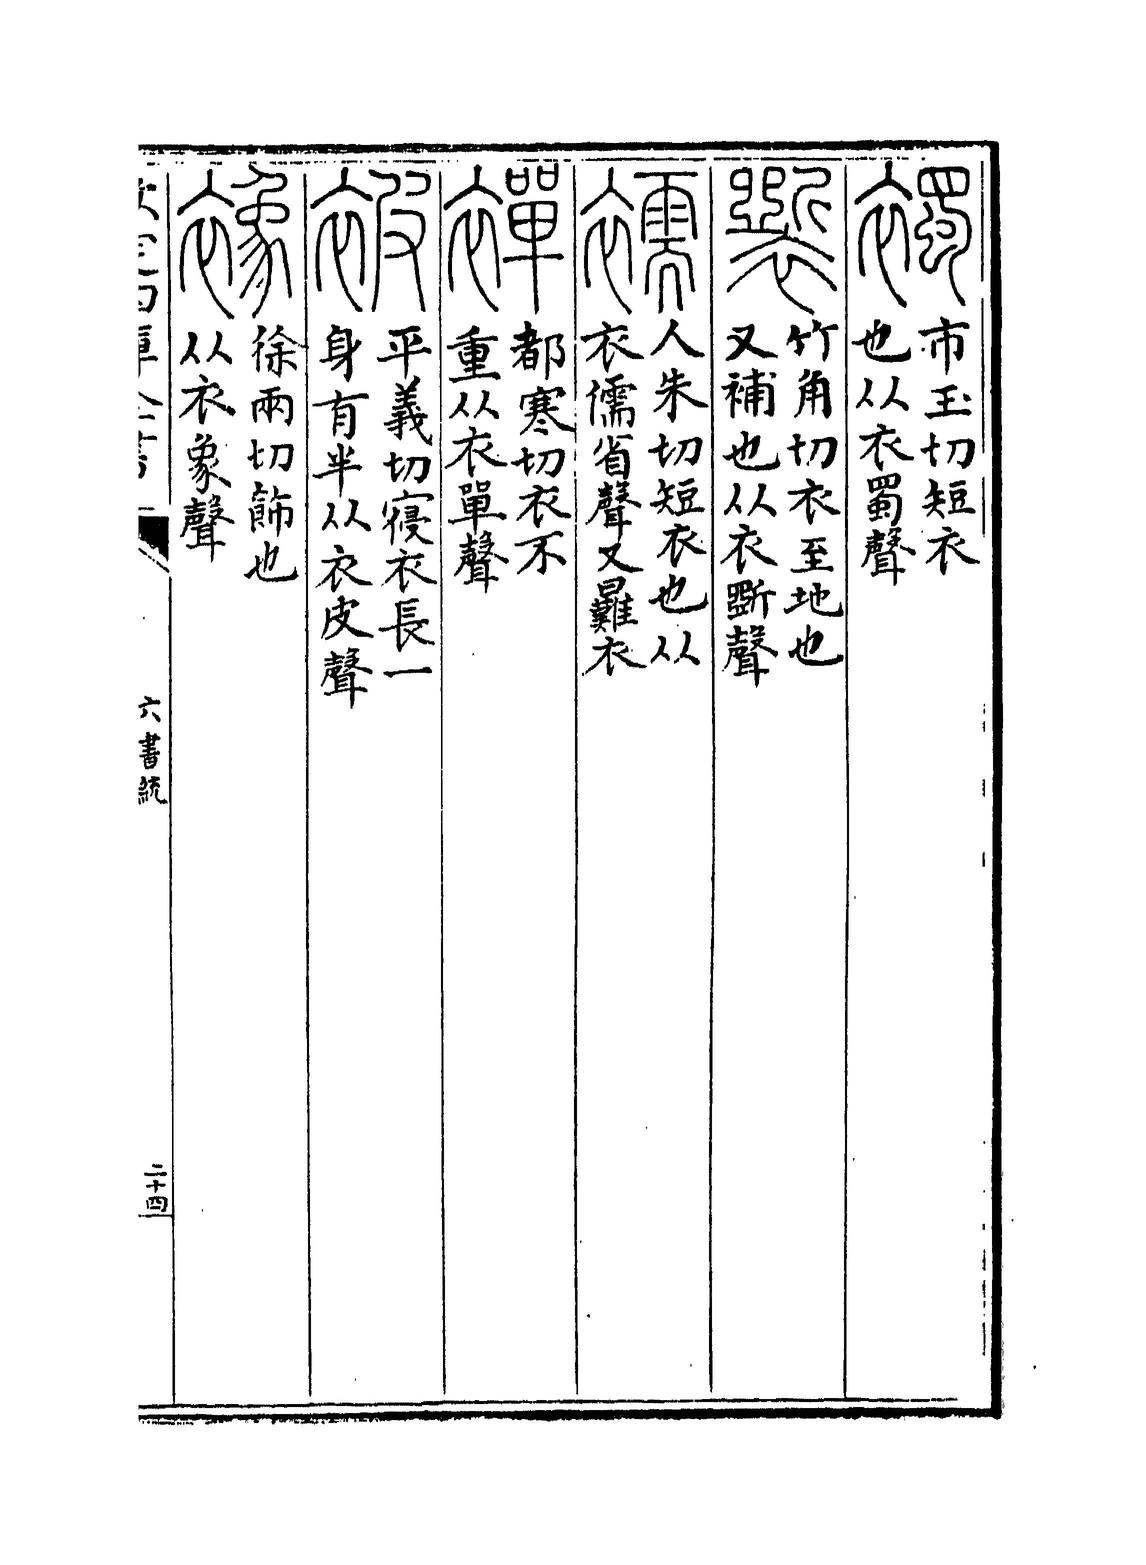 襡
市玉切短衣
也从衣蜀聲
𧝊
竹角切衣至地也
又補也从衣斲聲
襦
人朱切短衣也从
衣儒省聲又㬮衣
襌
都寒切衣不
重从衣單聲
被
平義切寑衣長一
身有半从衣皮聲
襐
徐兩切飾也
从衣象聲
六書統
二十四